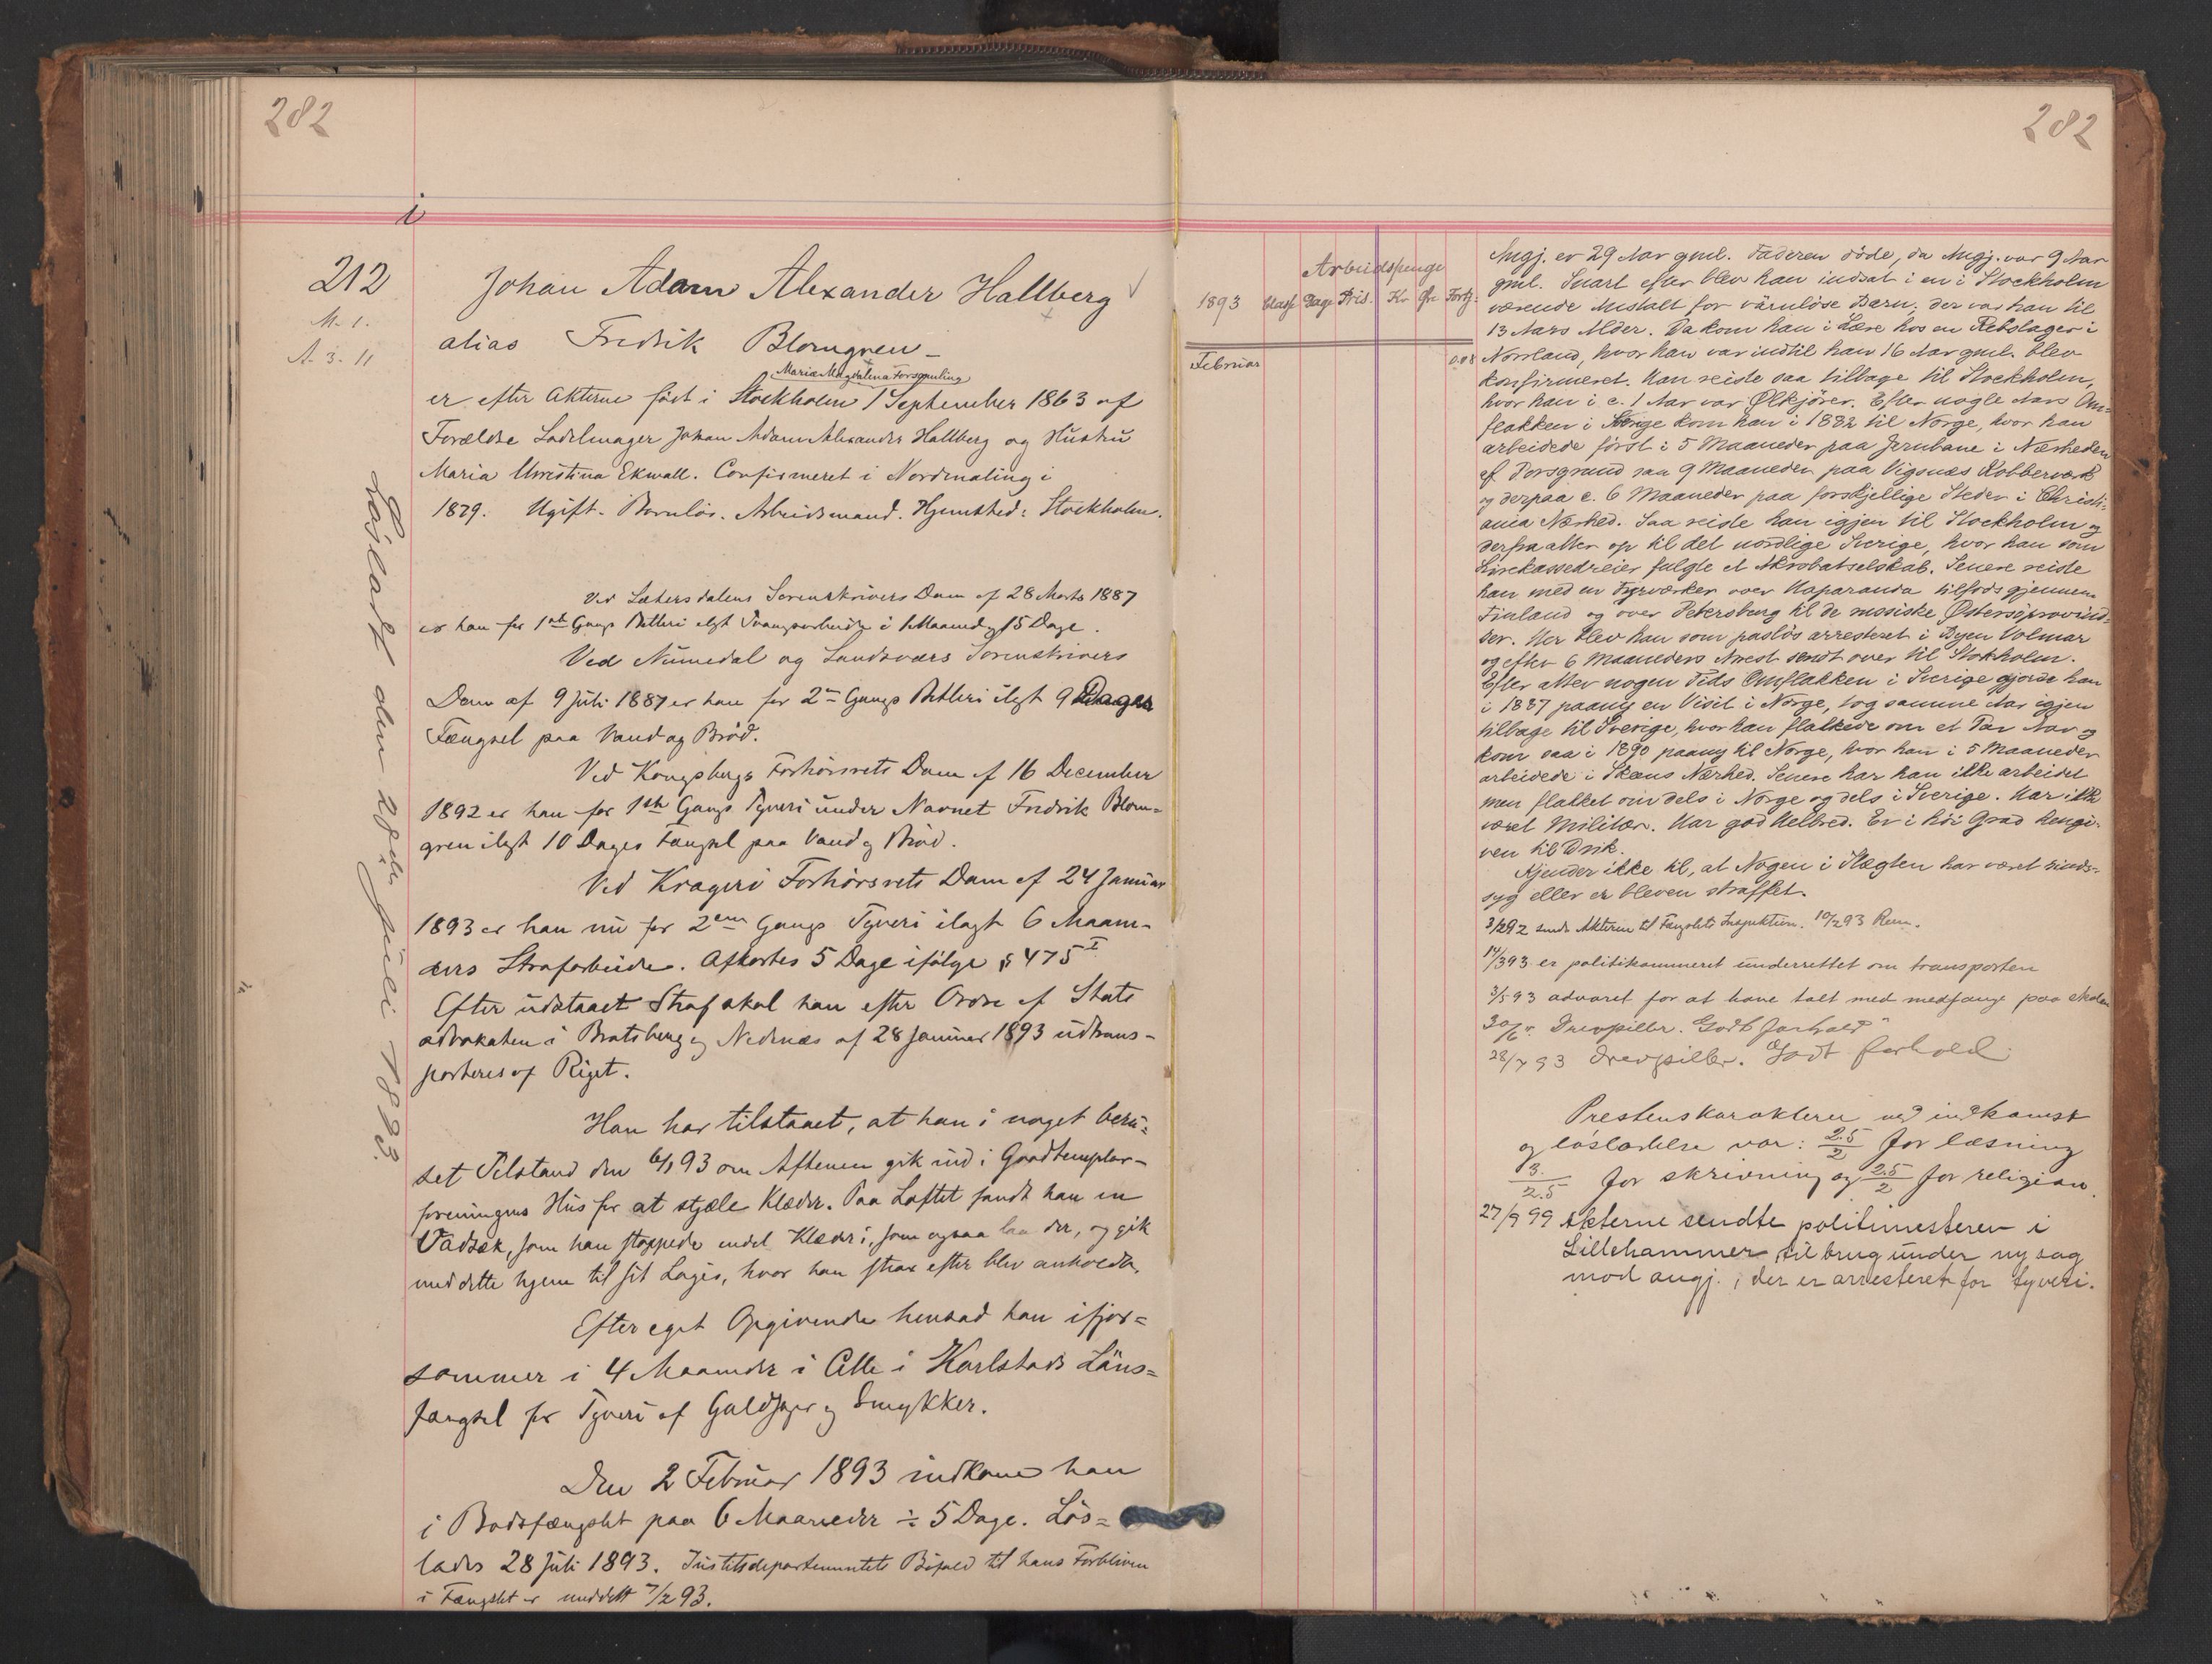 282
i
212
M. 1.
A. 3. 11
Johan Adam Alexander Hallberg
alias Fredrik Blomgren
Mariæ Magdalena Forsamling
er efter Akterne født i Stockholm 1 September 1863 af
Forældre Sadelmager Johan Adam Alexander Hallberg og Hustru
Maria Christina Ekwall. Confirmeret i Nordmaling i
1879. Ugift. Barnløs. Arbeidsmand. Hjemsted: Stockholm.
Ved Sætersdalens Sorenskrivers Dom af 28 Marts 1887
er han for 1ste Gangs Betleri ilagt Tvangsarbeide i 1 Maaned og 15 Dage.
Ved Numedal og Sandsværs Sorenskrivers
Dom af 9 Juli 1887 er han for 2den Gangs Betleri ilagt 9 Dages
Fængsel paa Vand og Brød.
Ved Kongsbergs Forhørsrets Dom af 16 December
1892 er han for 1ste Gangs Tyveri under Navnet Fredrik Blom=
gren ilagt 10 Dages Fængsel paa Vand og Brød.
Ved Kragerø Forhørsrets Dom af 24 Januar
1893 er han nu for 2den Gangs Tyveri ilagt 6 Maane-
ders Strafarbeide. Afkortes 5 Dage ifølge § 475 I
Efter udstaaet Straf skal han efter Ordre af Stats
advokaten i Bratsberg og Nedenæs af 28 Januar 1893 udtrans-
porteres af Riget.
Han har tilstaaet, at han i noget beru=
set Tilstand den 6/1 93 om Aftenen gik ind i Goodtemplar-
foreningens Hus for at stjæle Klæder. Paa Loftet fandt han en
Vadsæk, som han stoppede endel Klæder i, som ogsaa laa der, og gik
med dette hjem til sit Logis, hvor han strax efter blev anholdt.
Efter eget Opgivende hensad han ifjor=
sommer i 4 Maaneder i Celle i Karlstads Läns=
fængsel for Tyveri af Guld og Smykker.
Den 2 Februar 1893 indkom han
i Bodsfængslet paa 6 Maaneder ÷ 5 Dage. Løs=
lades 28 Juli 1893. Justitsdepartementets Bifald til hans Forbliven
i Fængslet er meddelt 7/2 93.
Løsladt den 28de juli 1893.
282
Arbeidspenge
1893 Klasse Dage Pris. Kr Øre Fortj.
Februar 0.08
Angj. er 29 Aar gml. Faderen døde, da Angj. var 9 Aar
gml. Snart efter blev han indsat i en i Stockholm
værende Anstalt for värnlöse Barn; der var han til
13 Aars Alder. Da kom han i Lære hos en Rebslager i
Norrland, hvor han var indtil han 16 Aar gml. blev
konfirmeret. Han reiste saa tilbage til Stockholm,
hvor han i c. 1 Aar var Ølkjører. Efter nogle Aars Om=
flakken i Sverige kom han i 1882 til Norge, hvor han
arbeidede først i 5 Maaneder paa Jernbane i Nærheden
af Porsgrund saa 9 Maaneder paa Vigsnæs Kobberværk
og derpaa c. 6 Maaneder paa forskjellige Steder i Christi=
ania Nærhed. Saa reiste han igjen til Stockholm og
derfra atter op til det nordlige Sverige, hvor han som
Lirekassedreier fulgte et Akrobatselskab. Senere reiste
han med en Fyrværker over Haparanda tilfods gjennem
Finland og over Petersburg til de russiske Østersøprovind=
ser. Her blev han som pasløs arresteret i Byen Volmar
og efter 6 Maaneders Arrest sendt over til Stokholm.
Efter atter nogen Tids Omflakken i Sverige gjorde han
i 1887 paany en Visit i Norge, tog samme Aar igjen
tilbage til Sverige, hvor han flakkede om et Par Aar og
kom saa i 1890 paany til Norge, hvor han i 5 Maaneder
arbeidede i Skiens Nærhed. Senere har han ikke arbeidet
men flakket om dels i Norge og dels i Sverige. Har ikke
været Militær. Har god Helbred. Er i høi Grad hengi-
ven til Drik.
Kjender ikke til, at Nogen i Slægten har været sinds=
syg eller er bleven straffet.
3/2 92 sendt Akterne til Fængslets Inspektion. 10/2 93 Rem.
14/3 93 er politikammeret underrettet om transporten
3/5 93 advaret for at have talt med medfange paa skolen
30/6 Drevpiller. Godt forhold
28/7 93 Drevpiller. Godt forhold
Prestens karakterer ved indkomst
og løsladelse var: 2.5/2 for læsning
3./2.5 for skrivning og 2.5/2 for religion.
27/9 99 Akterne sendte politimesteren i
Lillehammer til brug under ny sag
mod angj., der er arresteret for tyveri.